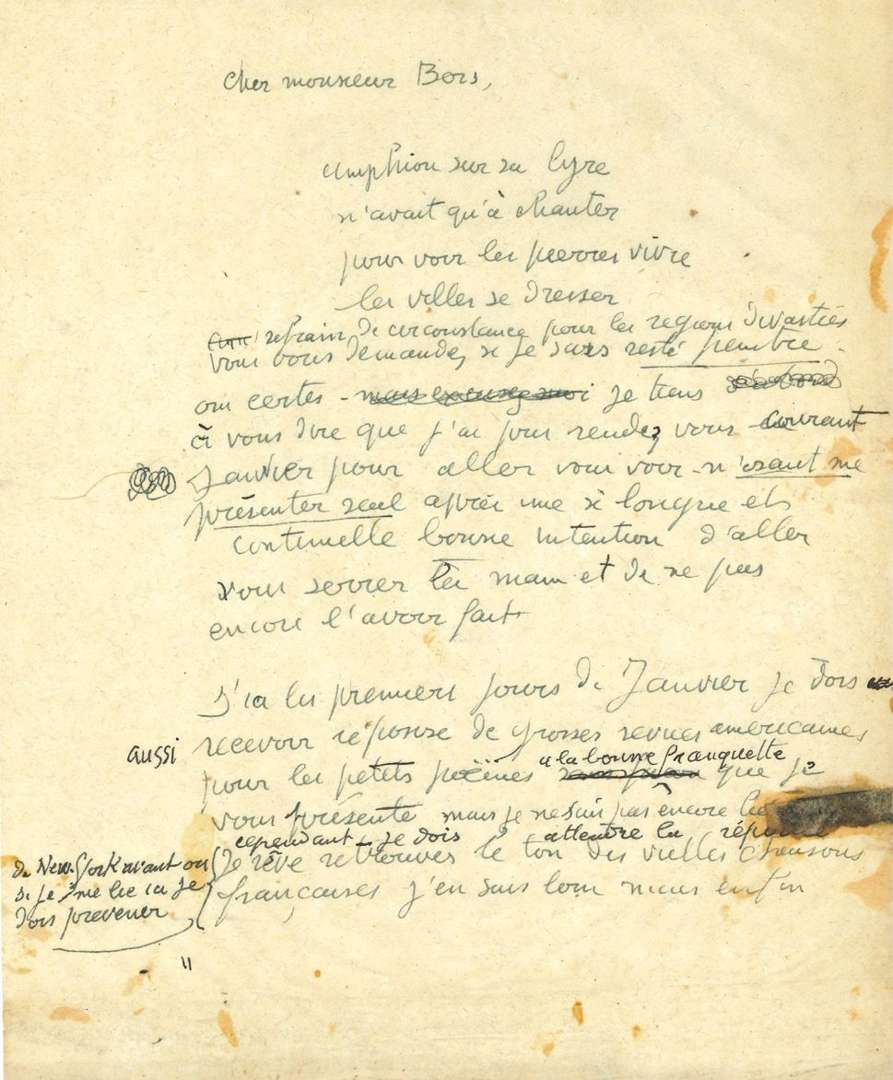 Cher monsieur Bors,
Amphion sur sa lyre
n'avait qu'à chanter
pour voir les pierres vivre
les villes se dresser
refrain de circonstance pour les regions dévastées
vous vous demandez si je suis resté peintre
oui certes - mais excusez moi je tiens d'abord
à vous dire que j'ai pris rendez vous courant
Janvier pour aller vous voir - n'osant me
présenter seul après une si longue et
continuelle bonne intention d'aller
vous serrer la main et de ne pas
encore l'avoir fait
D'ici les premiers jours de Janvier je dois
aussi recevoir réponse de grosses revues americaines
a la bonne franquette
pour les petits poëmes que je
vous présente mais je ne suis pas encore lié
cependant je dois attendre la réponse
de New York avant ou
si je me lie ici je
dois prevenir
Je rêve retrouver le ton des vieilles chansons
françaises j'en suis loin mais enfin
"